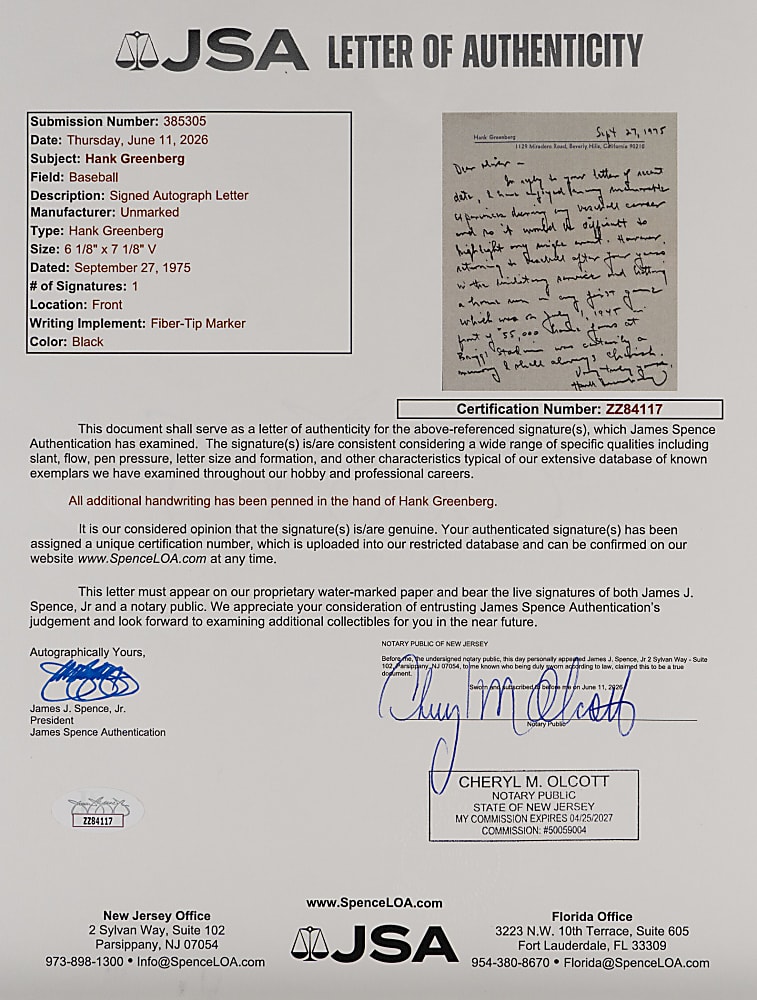 JSA LETTER OF AUTHENTICITY
Submission Number: 385305
Date: Thursday, June 11, 2026
Subject: Hank Greenberg
Field: Baseball
Description: Signed Autograph Letter
Manufacturer: Unmarked
Type: Hank Greenberg
Size: 6 1/8" x 7 1/8" V
Dated: September 27, 1975
# of Signatures: 1
Location: Front
Writing Implement: Fiber-Tip Marker
Color: Black
Sept 27, 1975
Hank Greenberg
1129 Miradero Road, Beverly Hills, California 90210
Dear
In reply to your letter of recent
date, I have enjoyed many memorable
experiences during my baseball career
and so it would be difficult to
highlight any single event. However,
returning to baseball after four years
in the military service and hitting
a home run in my first game
which was on July 1, 1945 in
front of 55,000 fans at
Briggs Stadium was certainly a
memory I shall always cherish.
Very truly yours,
Hank Greenberg
Certification Number: ZZ84117
This document shall serve as a letter of authenticity for the above-referenced signature(s), which James Spence
Authentication has examined. The signature(s) is/are consistent considering a wide range of specific qualities including
slant, flow, pen pressure, letter size and formation, and other characteristics typical of our extensive database of known
exemplars we have examined throughout our hobby and professional careers.
All additional handwriting has been penned in the hand of Hank Greenberg.
It is our considered opinion that the signature(s) is/are genuine. Your authenticated signature(s) has been
assigned a unique certification number, which is uploaded into our restricted database and can be confirmed on our
website www.SpenceLOA.com at any time.
This letter must appear on our proprietary water-marked paper and bear the live signatures of both James J.
Spence, Jr and a notary public. We appreciate your consideration of entrusting James Spence Authentication's
judgement and look forward to examining additional collectibles for you in the near future.
Autographically Yours,
James J. Spence, Jr.
President
James Spence Authentication
NOTARY PUBLIC OF NEW JERSEY
Before me, the undersigned notary public, this day personally appeared James J. Spence, Jr 2 Sylvan Way - Suite
102, Parsippany, NJ 07054, to me known who being duly sworn according to law, claimed this to be a true
document.
Sworn and subscribed to before me on June 11, 2026
Cheryl M Olcott
Notary Public
CHERYL M. OLCOTT
NOTARY PUBLIC
STATE OF NEW JERSEY
MY COMMISSION EXPIRES 04/25/2027
COMMISSION: #50059004
ZZ84117
www.SpenceLOA.com
New Jersey Office
2 Sylvan Way, Suite 102
Parsippany, NJ 07054
973-898-1300 • Info@SpenceLOA.com
JSA
Florida Office
3223 N.W. 10th Terrace, Suite 605
Fort Lauderdale, FL 33309
954-380-8670 • Florida@SpenceLOA.com